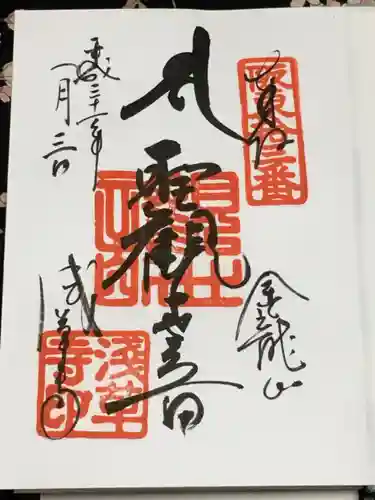 奉拝
坂東拾三番
金龍山
聖観世音
平成三十一年
一月三日
浅草寺
浅草
寺印